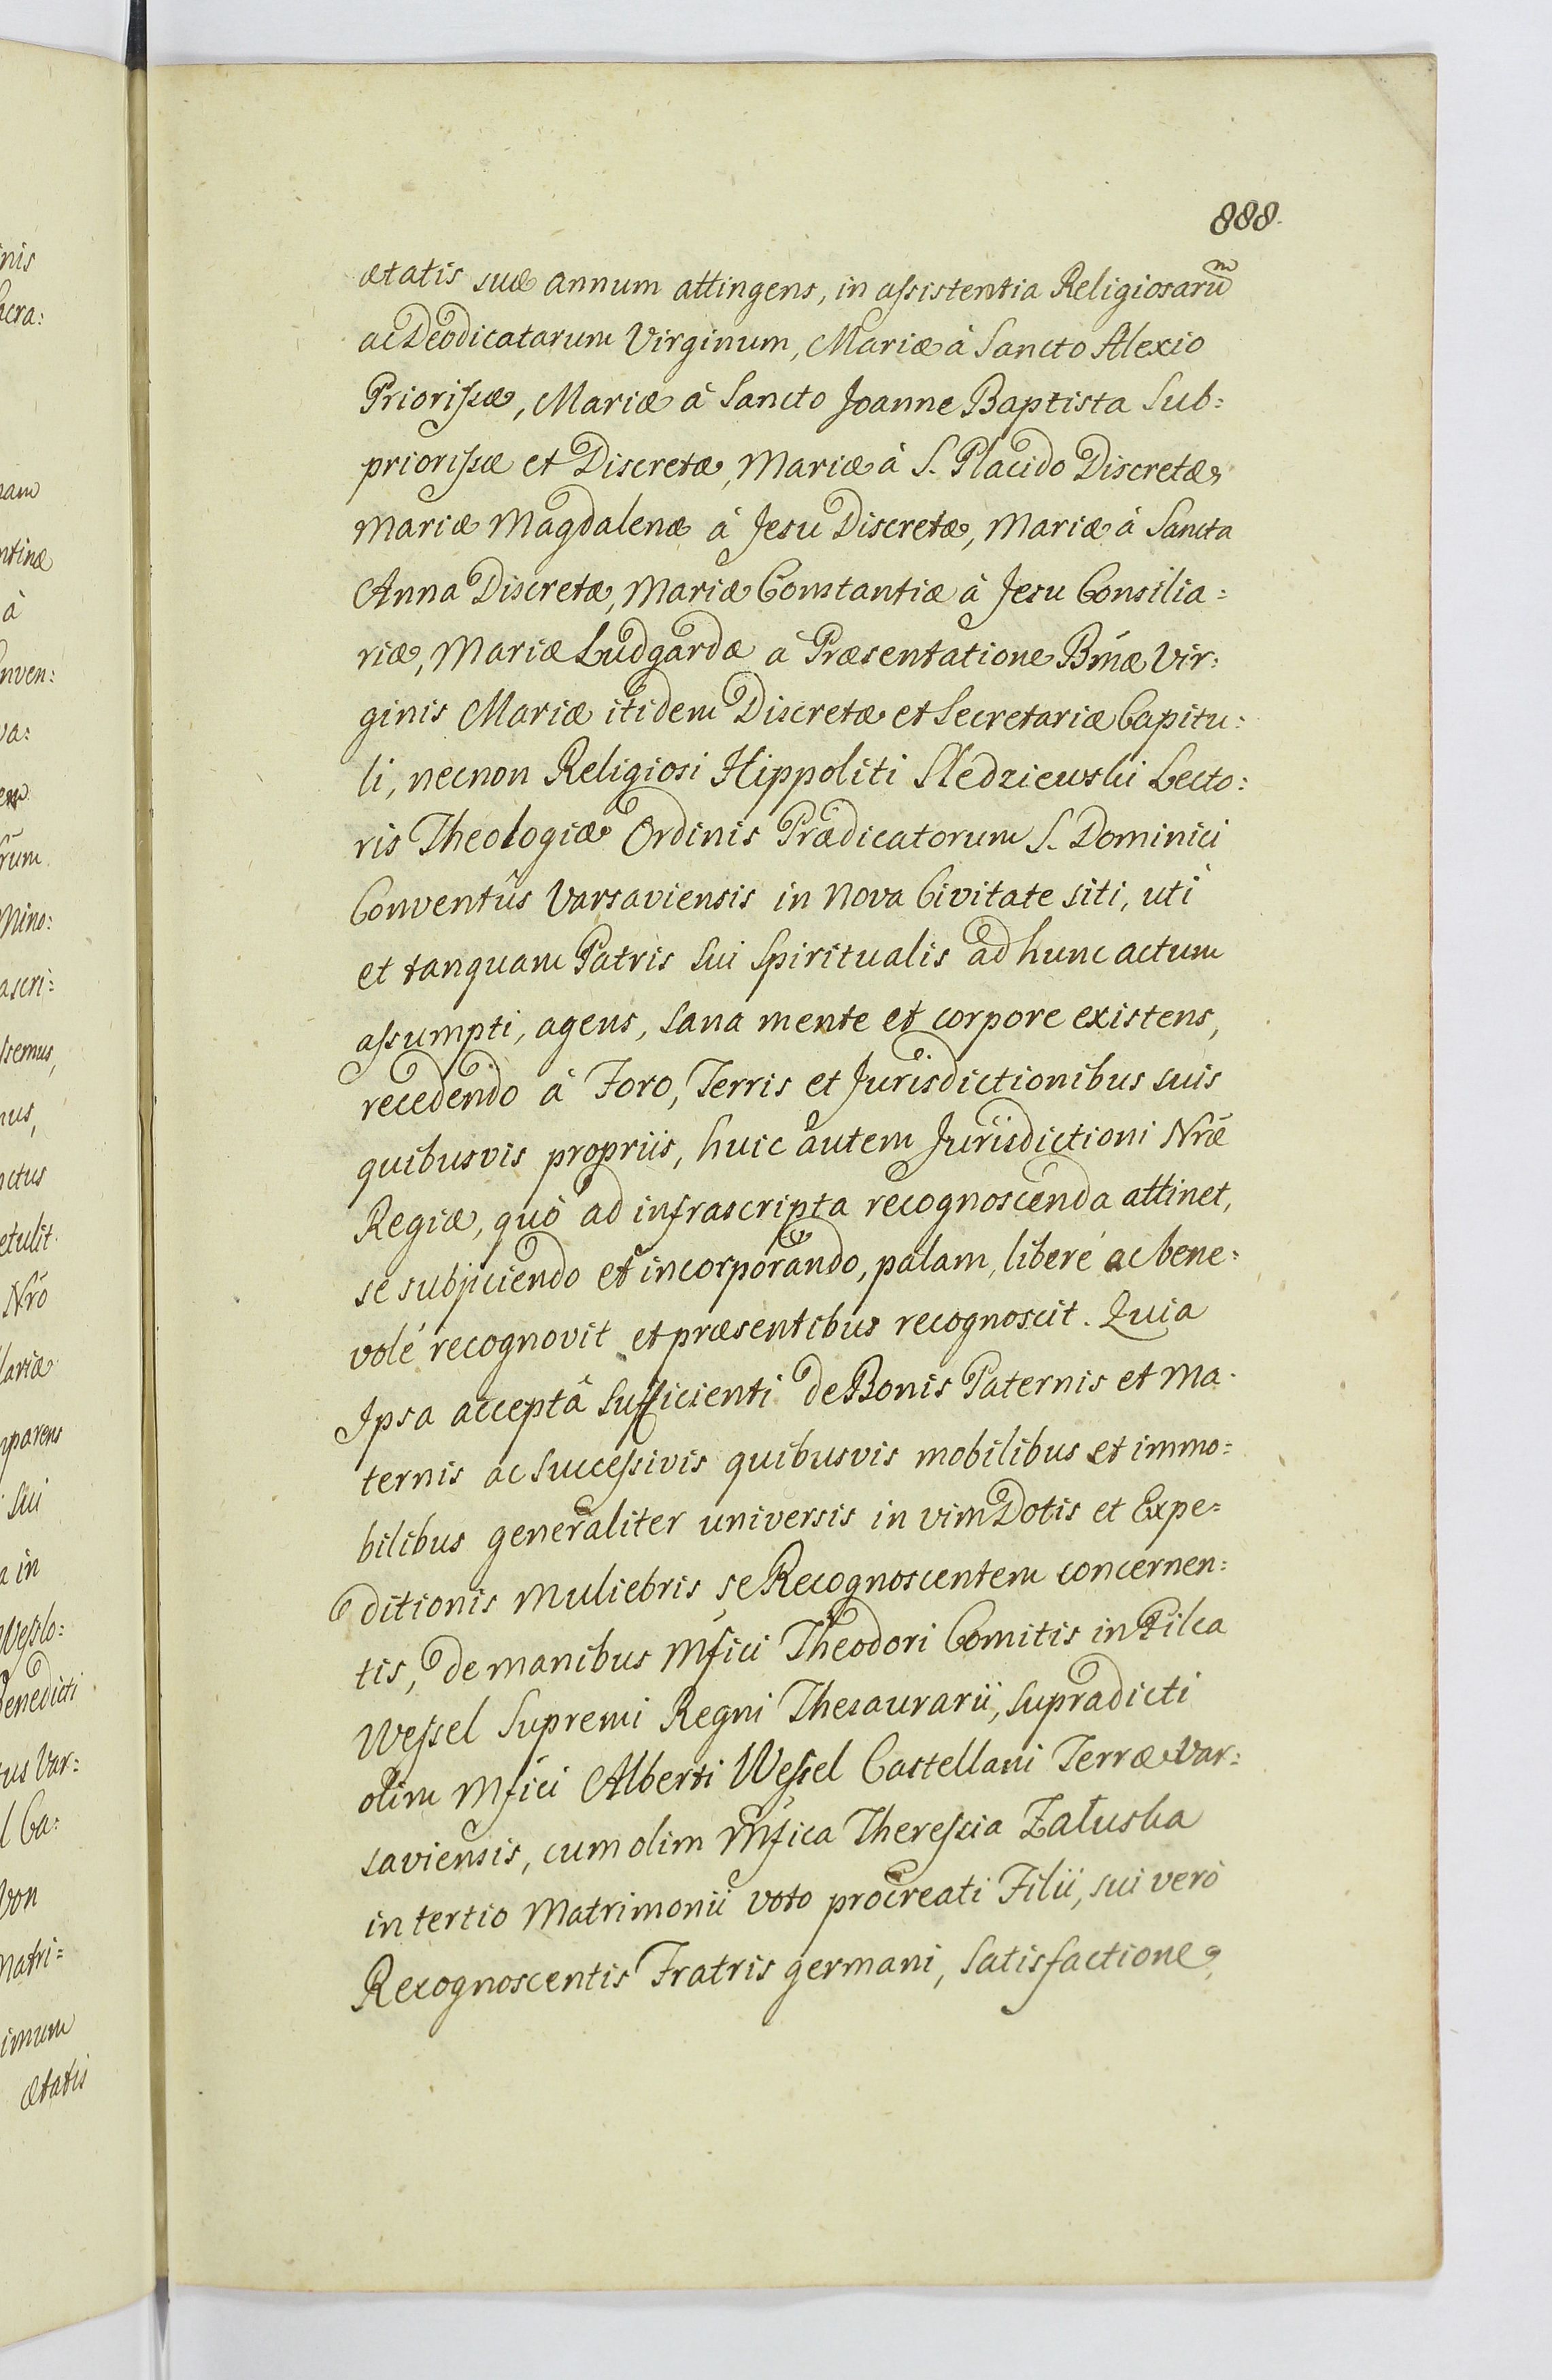 888.
ætatis suæ annum attingens, in assistentia Religiosarum
ac Deodicatarum Virginum, Mariæ à Sancto Alexio
Priorissæ, Mariæ à Sancto Joanne Baptista Sub:
priorissæ et Discretæ, Mariæ à S. Placido Discretæ,
Mariæ Magdalenæ à Jesu Discretæ, Mariæ à Sancta
Anna Discretæ, Mariæ Constantiæ à Jesu Consilia:
riæ, Mariæ Ludgardæ a Præsentatione Bm̃æ Vir:
ginis Mariæ itidem Discretæ et Secretariæ Capitu:
li, necnon Religiosi Hippoliti Sledziewski Lecto:
ris Theologiæ Ordinis Prædicatorum S. Dominici
Conventûs Varsaviensis in Nova Civitate siti, uti
et tanquam Patris sui spiritualis ad hunc actum
assumpti, agens, sana mente et corpore existens,
recedendo à Foro, Terris et Jurisdictionibus suis
quibusvis propriis, huic autem Jurisdictioni Nrẽ
Regiæ, quò ad infrascripta recognoscenda attinet,
se subjiciendo et incorporando, palam, liberé ac bene:
volé recognovit et præsentibus recognoscit. Quia
Ipsa acceptâ sufficienti de Bonis Paternis et Ma:
ternis ac successivis quibusvis mobilibus et immo:
bilibus generaliter universis in vim Dotis et Expe:
ditionis Muliebris se Recognoscentem concernen:
tis, de manibus Mfici Theodori Comitis in Pilca
Wessel Supremi Regni Thesaurarii, supradicti
olim Mfici Alberti Wessel Castellani Terræ Var:
saviensis, cum olim Mfica Therescia Załuska
in tertio Matrimonii voto procreati Filii, sui verò
Recognoscentis Fratris germani, satisfactione,
nis
acra:
nam
ntinæ
à
nven:
va:
rum
Mino:
ascri:
ssemus,
nus,
nctus
etulit.
Nrõ
lariæ
mparens
sui
a in
Wesslo:
Benedicti
tus Var:
l Ca:
von
Matri:
imum
ætatis